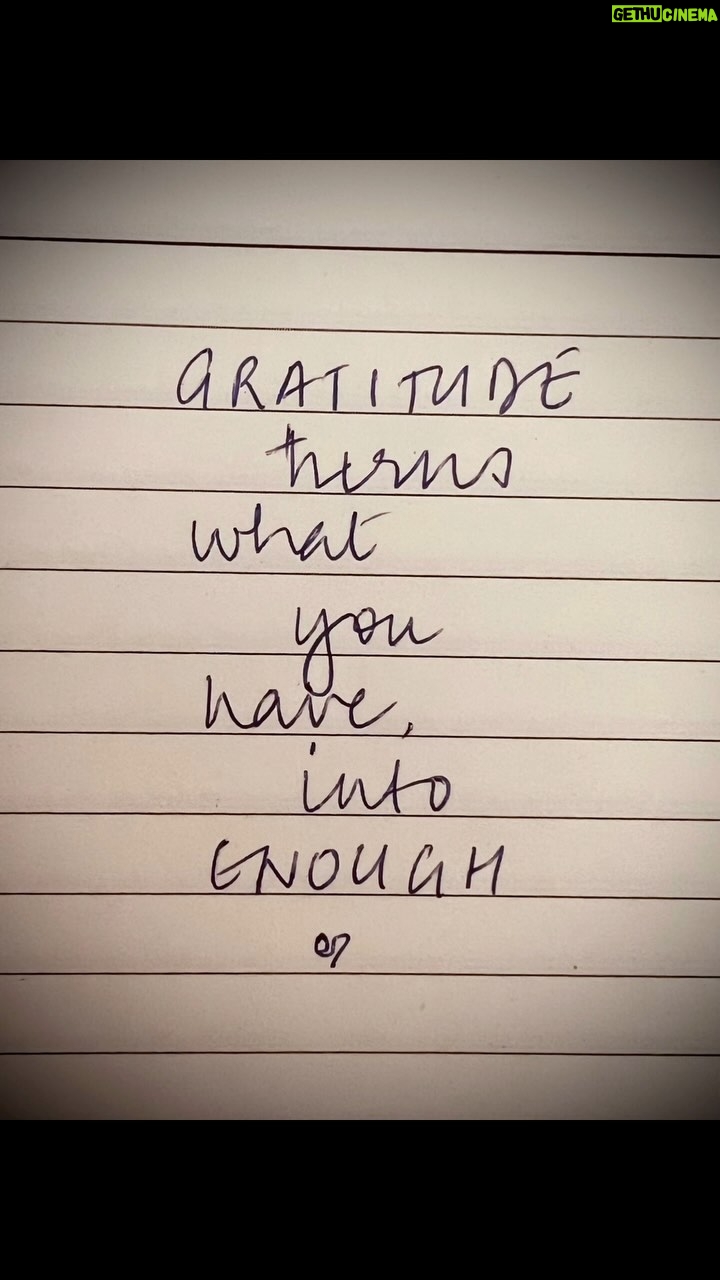 GETHUCINEMA
GRATITUDE
turns
what
you
have,
into
ENOUGH